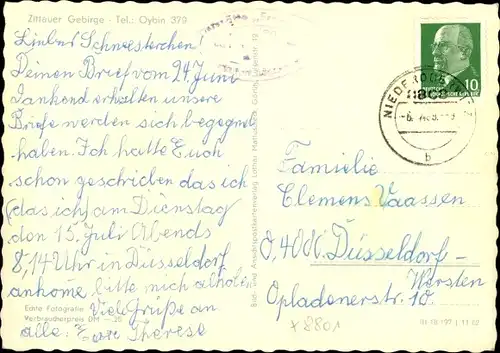 Zittauer Gebirge - Tel.: Oybin 379
Liebes Schwesterchen!
Deinen Brief vom 24 Juni
Dankend erhalten unsere
Briefe werden sich begegnet
haben. Ich hatte Euch
schon geschrieben das ich
(das ich) am Dienstag
den 15. Juli Abends
8,14 Uhr in Düsseldorf
ankome bitte mich abholen
Viele Grüße an
alle. Eure Therese
Echte Fotografie
Verbraucherpreis DM —.25
Bild- und Ansichtskartenverlag Lothar
10
NIEDERODERWITZ
8802
b
Familie
Clemens Vaassen
D, 4000 Düsseldorf-
Wersten
Opladenerstr. 10.
x 8801